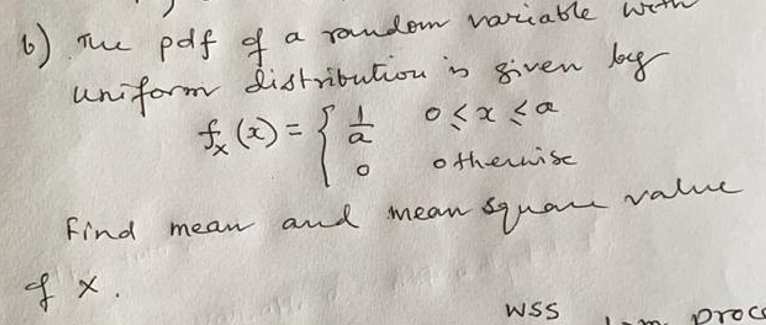 6) The pdf of a random variable with
uniform distribution is given by
fx (x) = { 1/a 0 ≤ x ≤ a
0 otherwise
Find mean and mean square value
of x.
WSS proc